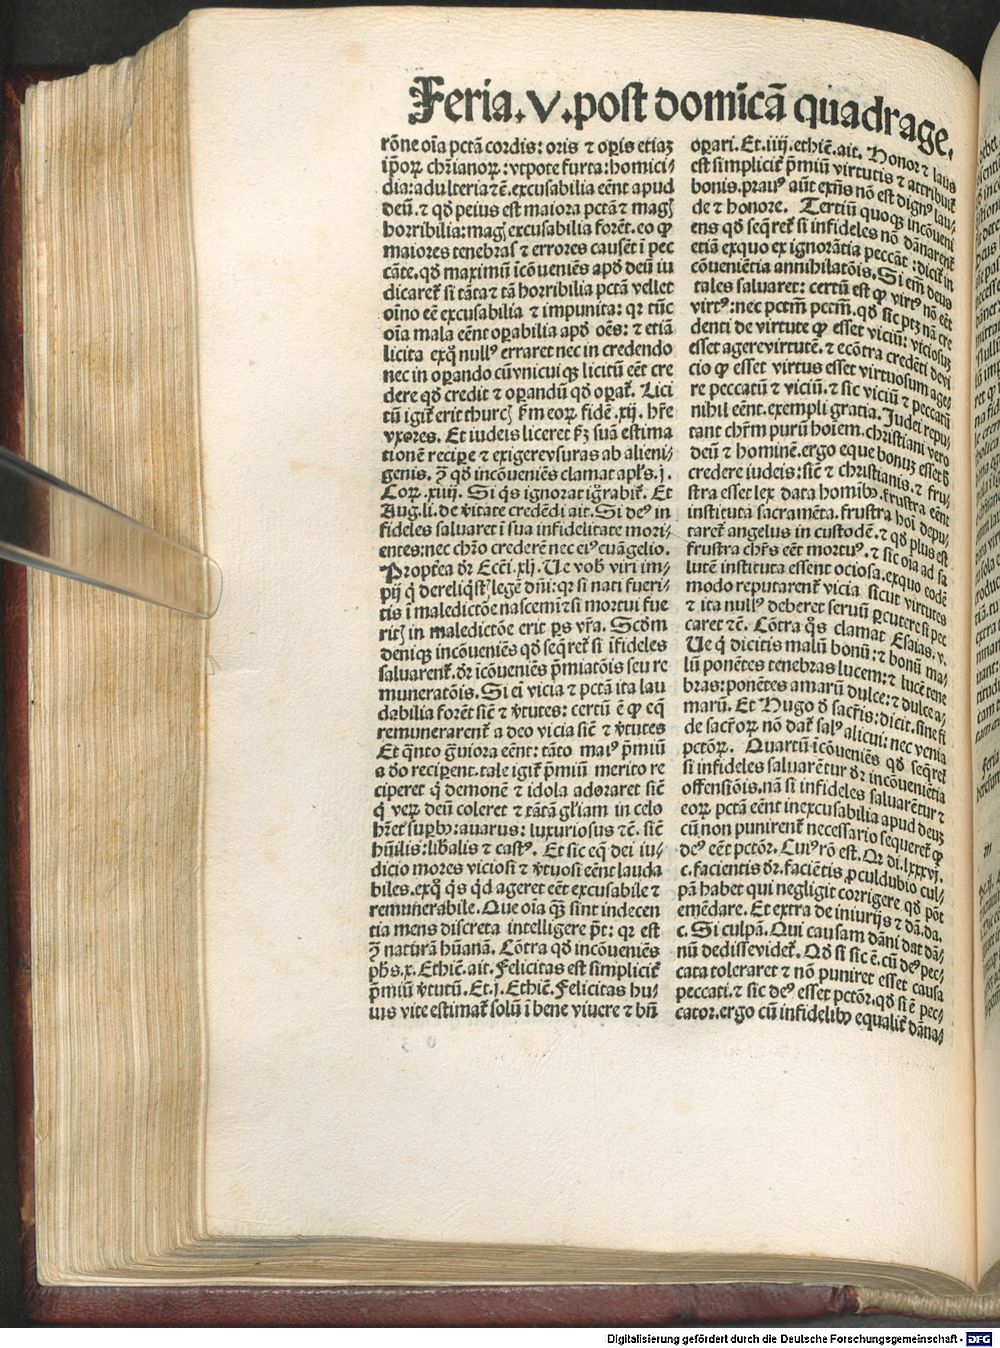 Feria.V.post domīcā quadrage.
rōne oīa pctā cordis: oris ⁊ oꝑis etiaꝫ
ip̄oꝝ chr̄ianoꝝ: vtpote furta: homici⸗
dia: adulteria ⁊c̄. excusabilia eēnt apud
deū. ⁊ qđ peius est maiora pctā ⁊ magꝭ
horribilia: magꝭ excusabilia forēt. eo ꝙ
maiores tenebras ⁊ errores causēt ī pec
cāte. qđ maximū īcōueniēs apđ deū iu
dicaret̄ si tāta ⁊ tā horribilia pctā vellet
oīno eē excusabilia ⁊ impunita: qꝛ tūc
oīa mala eēnt oꝑabilia apđ oēs: ⁊ etiā
licita exq̊ nullꝰ erraret nec in credendo
nec in oꝑando cū vnicuiqꝫ licitū eēt cre
dere qđ credit ⁊ oꝑandū qđ oꝑat̄. Lici
tū igit̄ erit thurcꝭ ẜm eoꝝ fidē .xij. hr̄e
vxores. Et iudeis liceret ẜꝫ suā estima
tionē recipe ⁊ exigere vsuras ab alieni⸗
genis. ꝯ̄ qđ incōueniēs clamat apl̄s .j.
Coꝝ. xiiij. Si q̄s ignorat iḡrabit̄. Et
Aug. li. de v̄itate credēdi ait. Si deꝰ in
fideles saluaret ī sua infidelitate mori⸗
entes: nec chr̄o crederē nec eiꝰ euāgelio.
Propt̄ea dr̄ Ecc̄i. xlj. Ue vob̄ viri im⸗
pij q̄ dereliq̄stꝭ legē dn̄i: qꝛ si nati fueri⸗
tis ī maledictōe nascemī ⁊ si mortui fue
ritꝭ in maledictōe erit ꝑs vr̄a. Scd̄m
deniqꝫ incōueniēs qđ seq̄ret̄ si īfideles
saluarent̄. dr̄ īcōueniēs p̄miatōis seu re
muneratōis. Si eī vicia ⁊ pctā ita lau
dabilia forēt sic̄ ⁊ v̄tutes: certū ē ꝙ eq̄
remunerarent̄ a deo vicia sic̄ ⁊ v̄tutes
Et q̄nto g̊uiora eēnt: tāto maiꝰ p̄miū
a do recipent. tale igit̄ p̄miū merito re
ciperet q̄ demonē ⁊ idola adoraret sic̄
q̄ veꝝ deū coleret ⁊ tātā gl̄iam in celo
hr̄et suꝑbꝰ: auarus: luxuriosus ⁊c̄. sic̄
hūilis: lib̄alis ⁊ castꝰ. Et sic eq̄ dei iu⸗
dicio mores viciosi ⁊ v̄tuosi eēnt lauda
biles. exq̊ q̄s q̊d ageret eēt excusabile ⁊
remunerabile. Que oīa q̄ꝫ sint indecen
tia mens discreta intelligere p̄t: qꝛ est
ꝯ̄ naturā hūanā. Cōtra qđ incōueniēs
ph̄s .x. Ethic̄. ait. Felicitas est simplicit̄
p̄miū v̄tutū. Et .j. Ethic̄. Felicitas hu⸗
ius vite estimat̄ solū ī bene viuere ⁊ bn̄
oꝑari. Et .iiij. ethic̄. ait. Honor ⁊ laus
est simplicit̄ p̄miū virtutis ⁊ attribuit̄
bonis. prauꝰ aūt exn̄s nō est dignꝰ lau⸗
de ⁊ honore. Tertiū quoqꝫ incōueni
ens qđ seq̄ret̄ si infideles nō dānarent̄
etiā exquo ex ignorātia peccāt: dicit̄ in
cōueniētia annihilatōis. Si em̄ deus
tales saluaret: certū est ꝙ virtꝰ nō eēt
virtꝰ: nec pctm̄ pctm̄. qđ sic ptꝫ nā cre
denti de virtute ꝙ esset viciū: viciosuꝫ
esset agere virtutē. ⁊ ecōtra credēti devi
cio ꝙ esset virtus esset virtuosum age⸗
re peccatū ⁊ viciū. ⁊ sic viciū ⁊ peccatū
nihil eēnt. exempli gratia. Judei repu⸗
tant chr̄m purū hoīem. christiani vero
deū ⁊ hominē. ergo eque bonuꝫ esset đ
credere iudeis: sic̄ ⁊ christianis. ⁊ fru⸗
stra esset lex data homībꝰ. frustra eēnt
instituta sacramēta. frustra hoī depu⸗
taret̄ angelus in custodē. ⁊ qđ plus est
frustra chr̄s eēt mortuꝰ. ⁊ sic oīa ad sa
lutē instituta essent ociosa. exquo eodē
modo reputarent̄ vicia sicut virtutes
⁊ ita nullꝰ deberet seruū ꝑcutere si pec
caret ⁊c̄. Cōtra q̊s clamat Esaias. v.
Ue q̄ dicitis malū bonū: ⁊ bonū ma⸗
lū ponētes tenebras lucem: ⁊ lucē tene
bras: ponētes amarū dulce: ⁊ dulce a⸗
marū. Et Hugo đ sacr̄is: dicit. sine fi
de sacr̄oꝝ nō dat̄ salꝰ alicui: nec venia
pctōꝝ. Quartū īcōueniēs qđ seq̄ret̄
si infideles saluarētur dr̄ incōueniētia
offensiōis. nā si infideles saluarētur ⁊
eoꝝ pctā eēnt inexcusabilia apud deuꝫ
cū non punirent̄ necessario sequeret̄ ꝙ
deꝰ eēt pctōr. Cuiꝰ rō est. Qꝛ di. lxxxvj.
c. facientis dr̄. faciētis ꝓculdubio cul⸗
pā habet qui negligit corrigere qđ pōt
emēdare. Et extra de iniurijs ⁊ dā. da.
c. Si culpā. Qui causam dāni dat dā⸗
nū dedisse videt̄. Qđ si sic ē. cū deꝰ pec⸗
cata toleraret ⁊ nō puniret esset causa
peccati. ⁊ sic deꝰ esset pctōr. qđ si ē pec⸗
cator. ergo cū infidelibꝰ equalit̄ dāna⸗
Digitalisierung gefördert durch die Deutsche Forschungsgemeinschaft - DFG